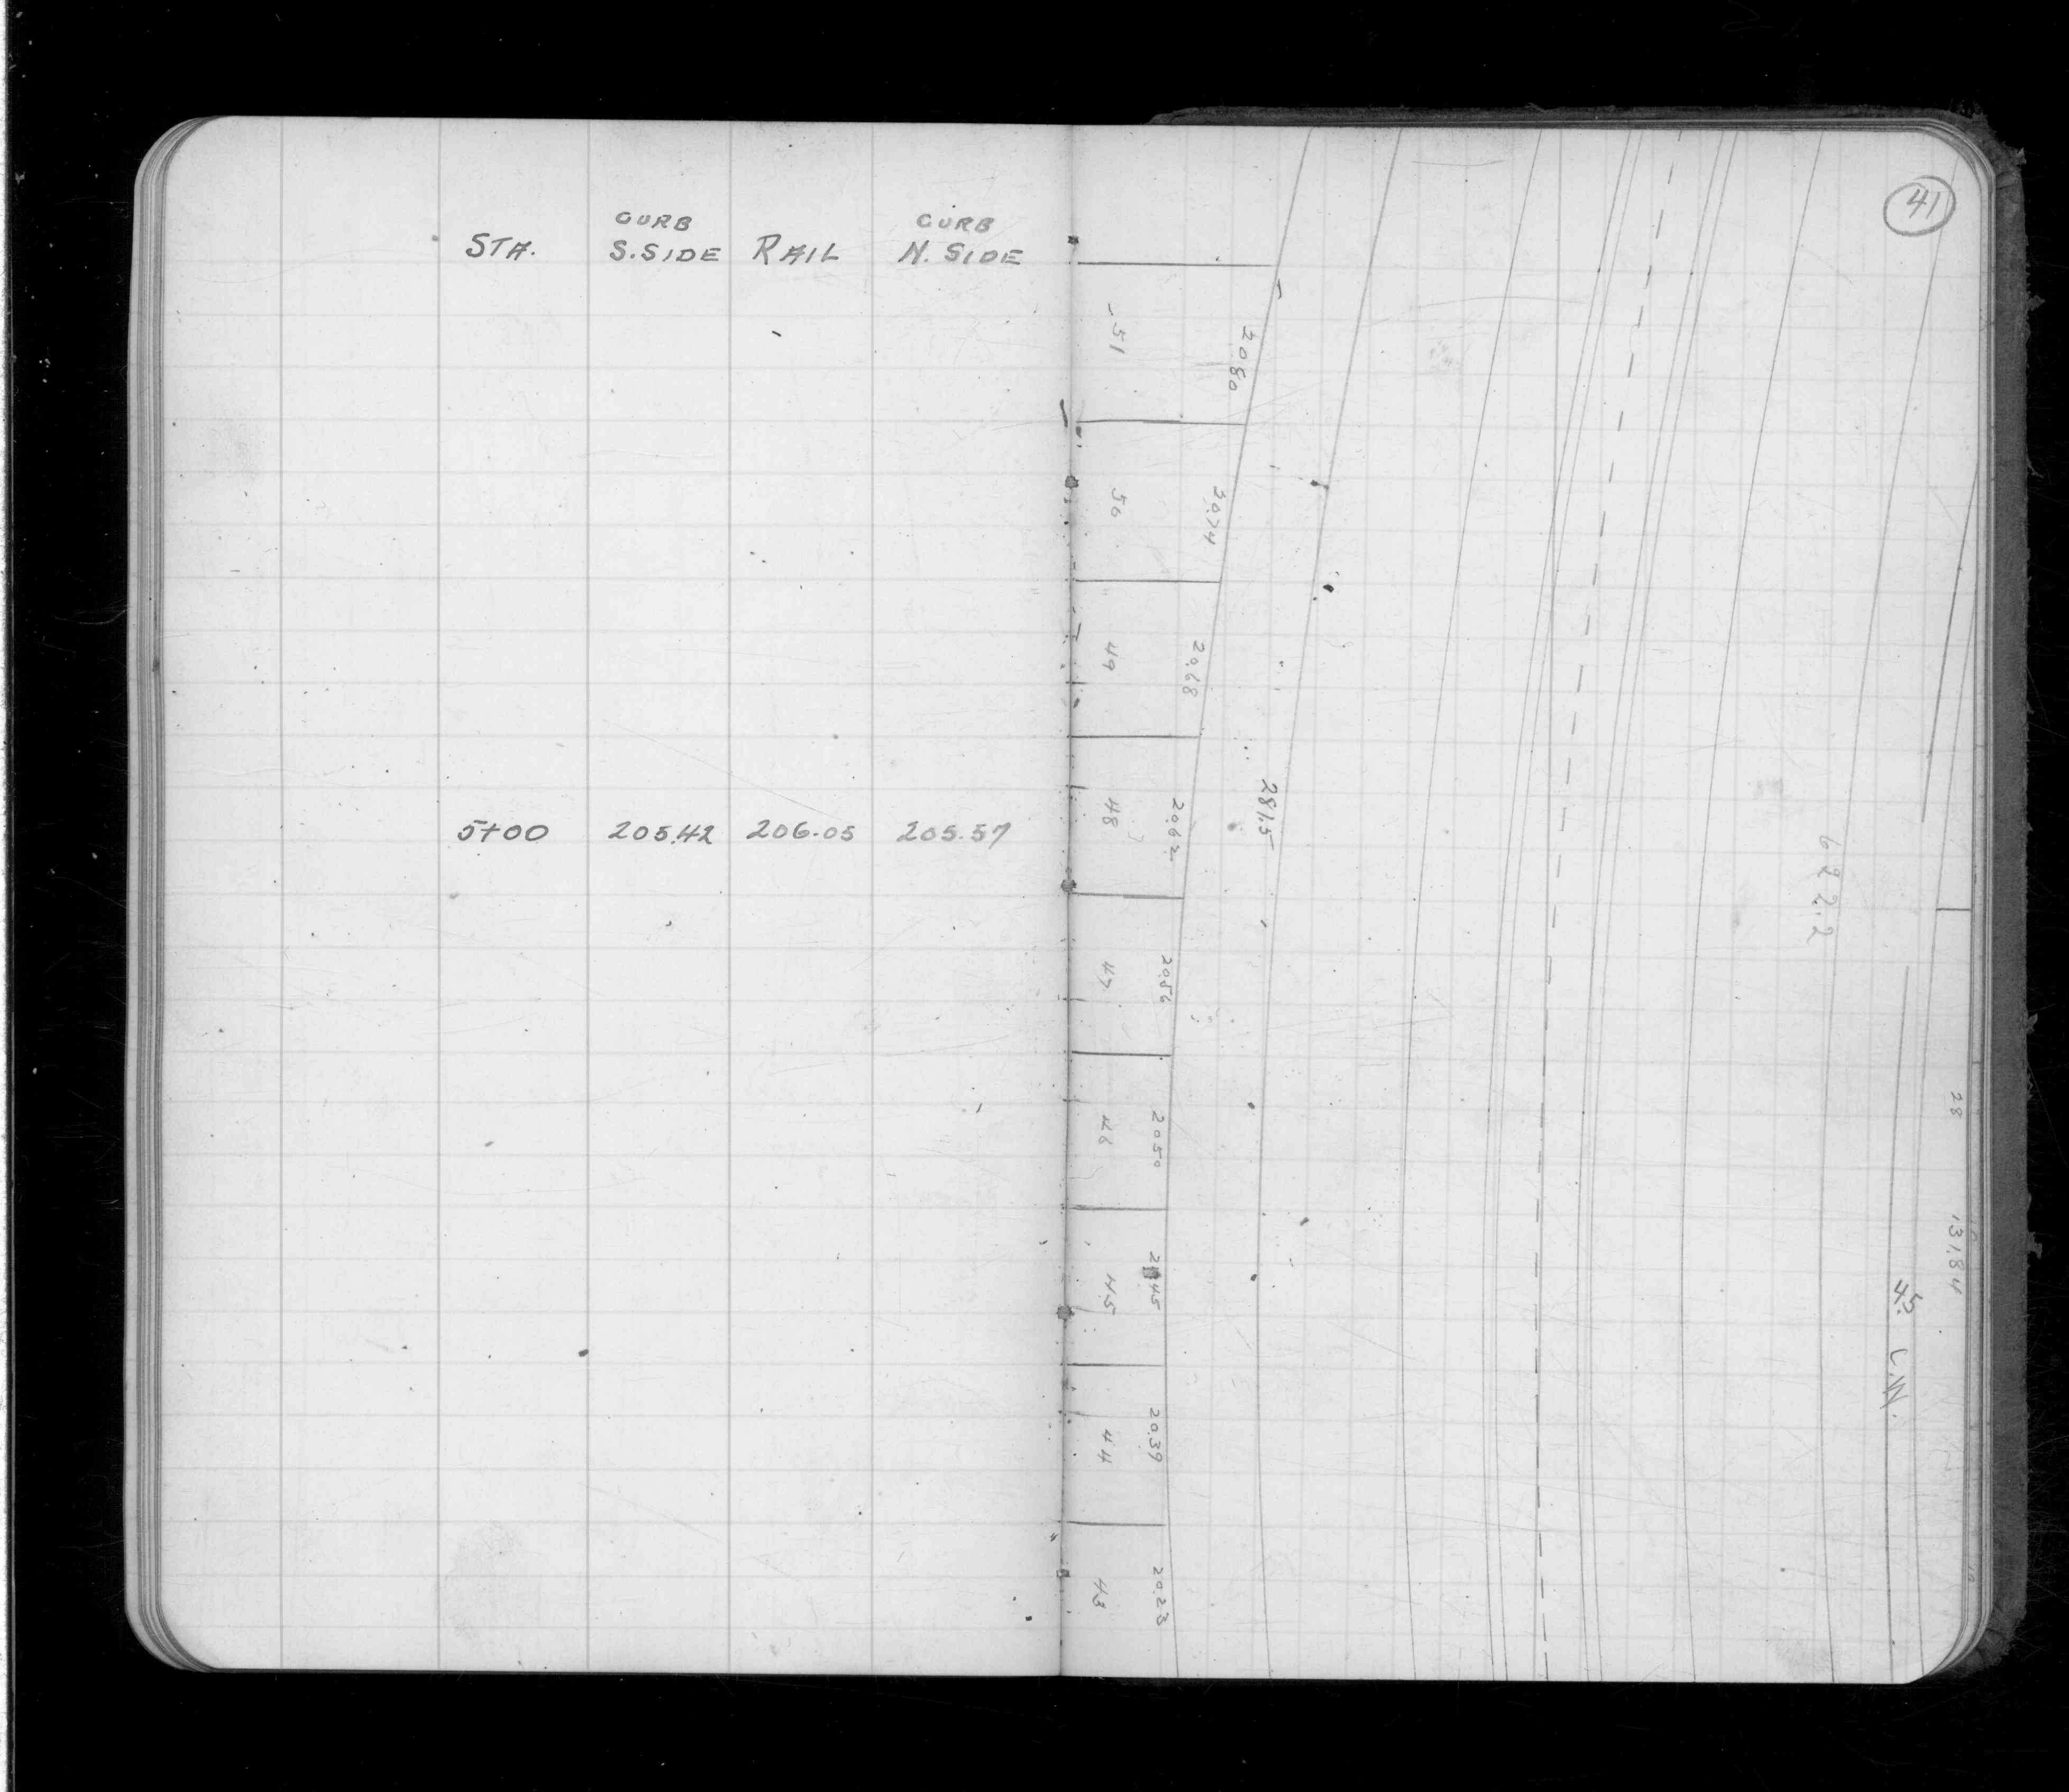 41
CURB CURB
STA. S.SIDE RAIL N. SIDE
5+00 205.42 206.05 205.57
51 20.80
50 20.74
49 20.68
48 20.62
47 20.56
46 20.50
45
44 20.39
43 20.23
281.5
622.2
28
131.84
45